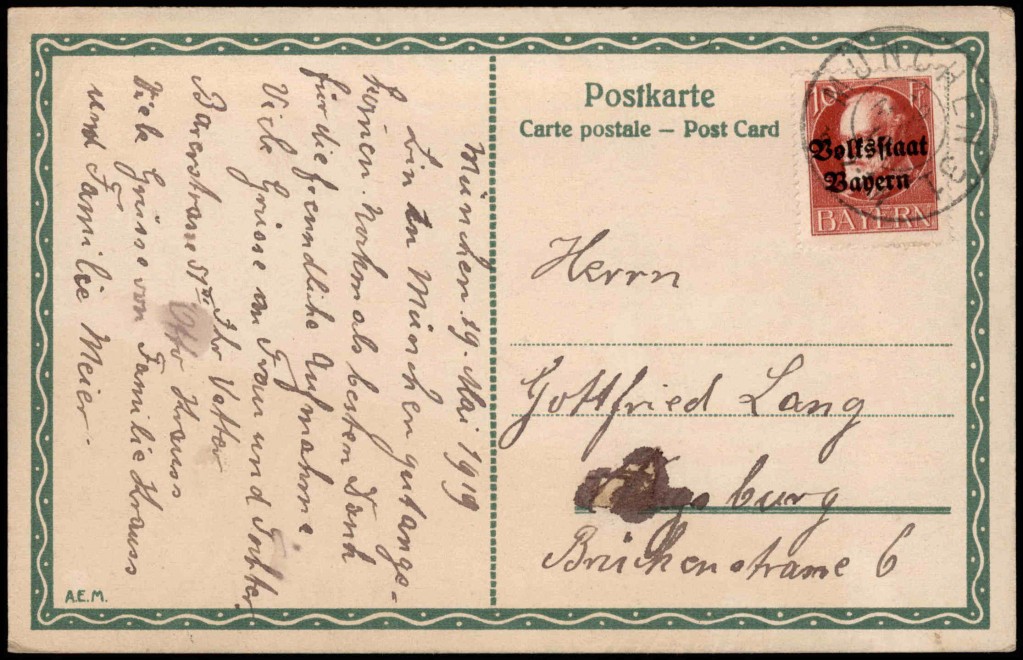 Postkarte
Carte postale – Post Card
MÜNCHEN
10 P
Volksstaat
Bayern
BAYERN
München 19. Mai 1919
Bin in München gut ange-
kommen. Nochmals besten Dank
für die freundliche Aufnahme
Viele Grüsse an Frau und Tochter
Ihr Vetter
Otto Krauss
Barerstrasse
Viele Grüsse von Familie Krauss
und Familie Meier.
Herrn
Gottfried Lang
burg
Brückenstrasse 6
A.E.M.